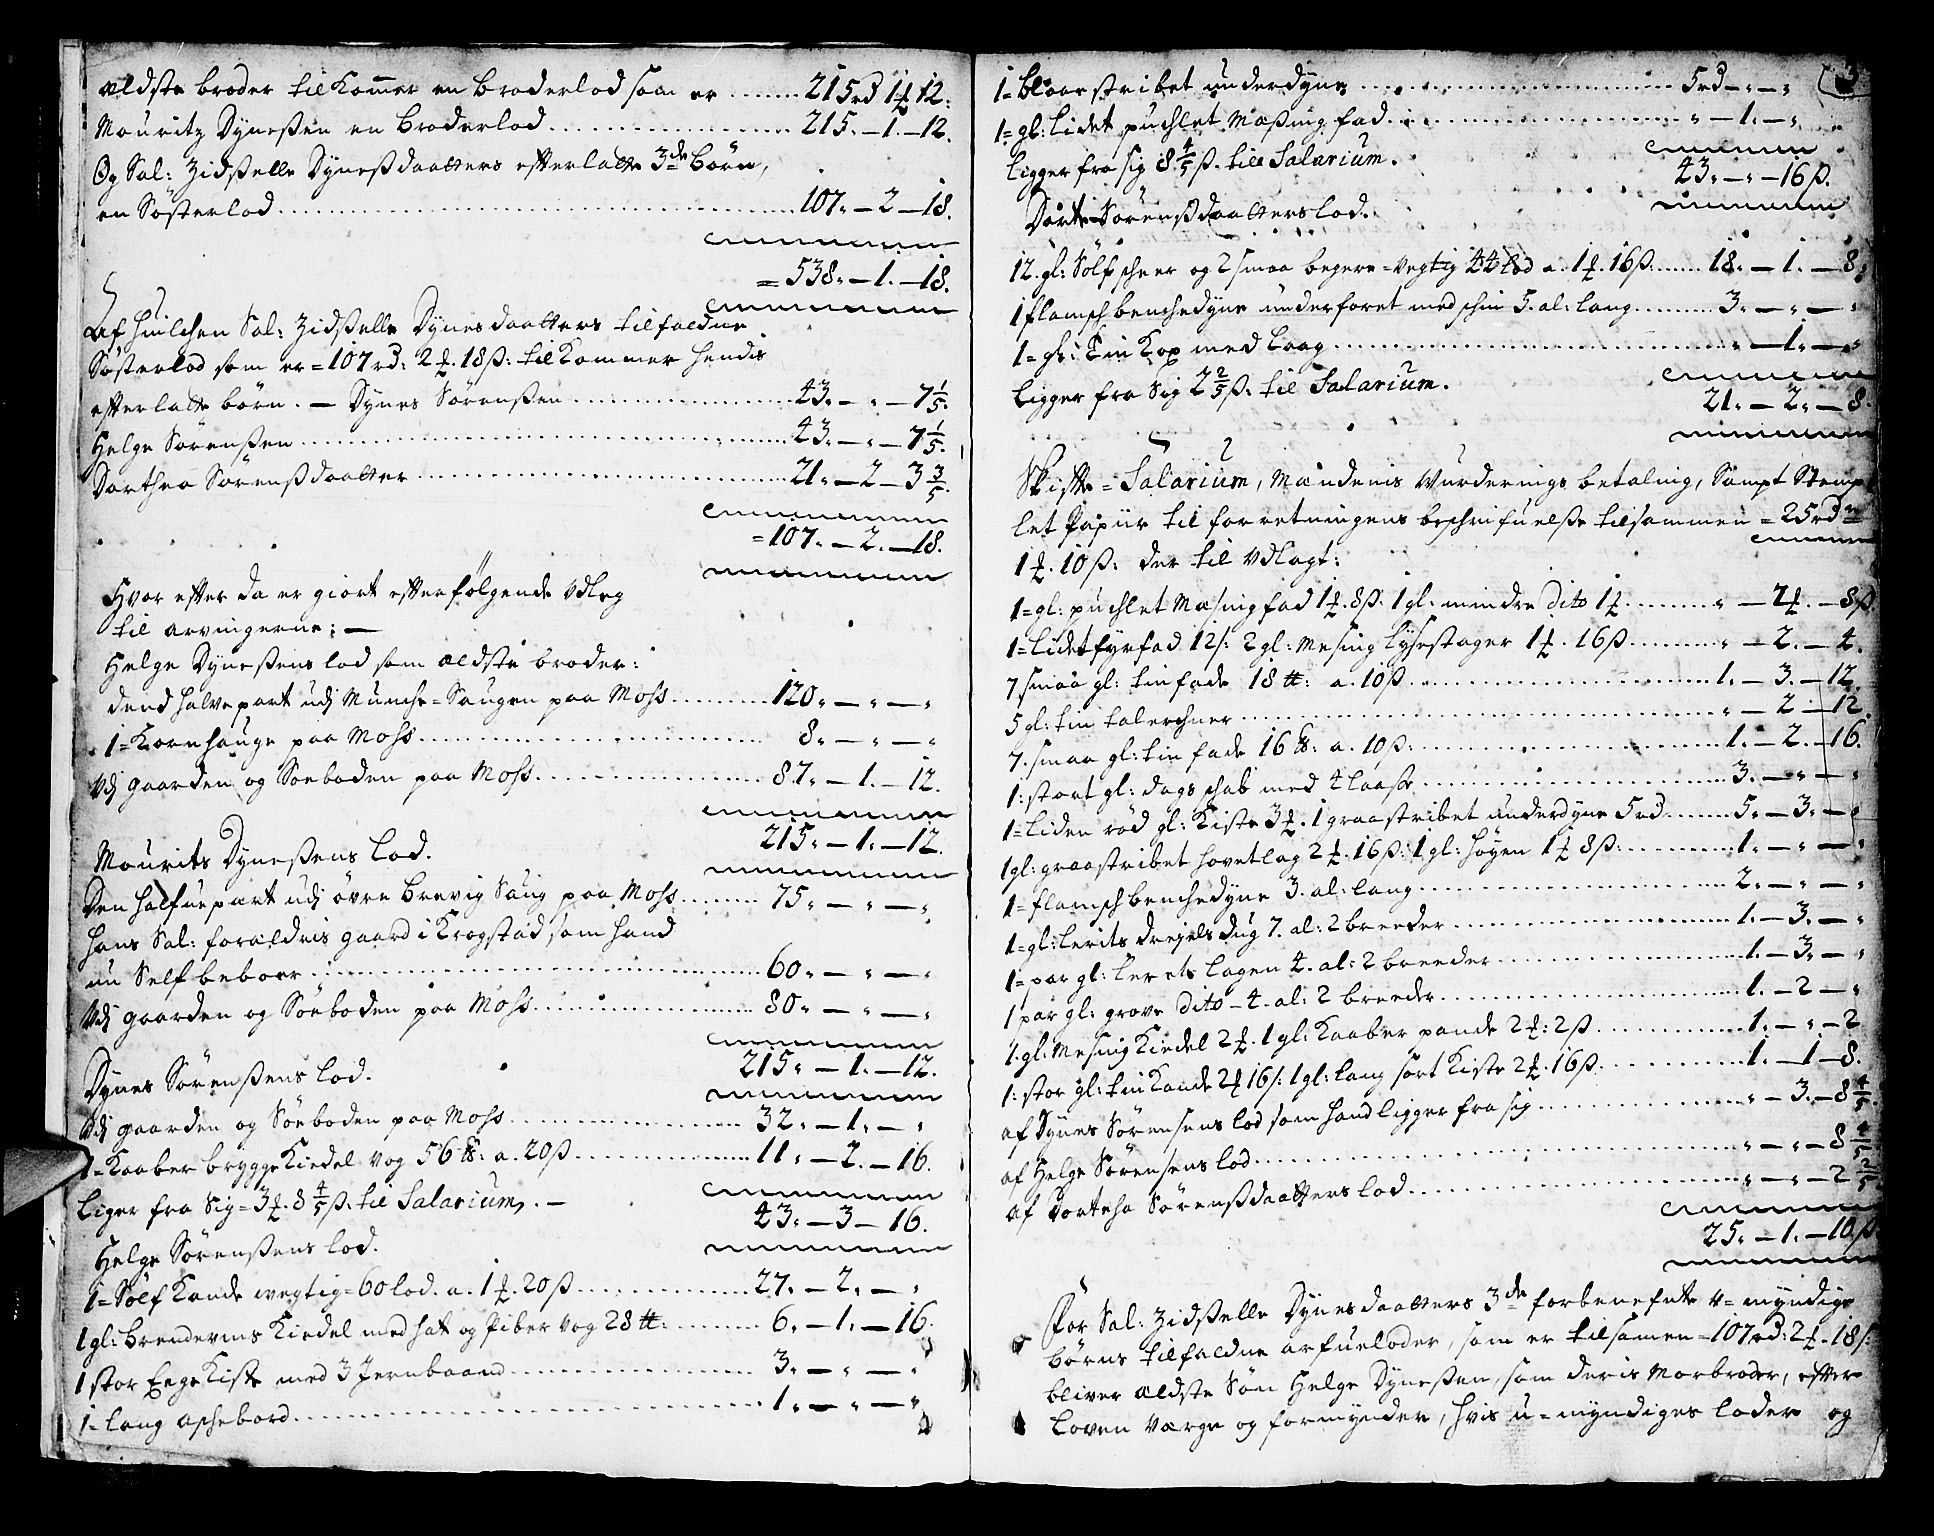 ældste broder til Kommer en broderlod som er ........ 215rd 1 ₰ 12:
Mouritz Dyneßen en broderlod ........ 215. — 1. — 12.
Og Sal: Zidßelle Dyneßdaatters efterlatte 3de børn,
en Søsterlod ........ 107. — 2 — 18.
= 538. — 1. — 18.
Af huilchen Sal: Zidßelle Dynesdaatters tilfaldne
Søsterlod som er = 107rd: 2 ₰. 18ß: til Kommer hendis
efterlatte børn. — Dynes Sørenßen ........ 43. — „ — 7 1/5.
Helge Sørenßen ........ 43. — „ — 7 1/5.
Dorthea Sørenßdaatter ........ 21. — 2 — 3 3/5.
= 107. — 2. — 18.
Hvor efter da er giort efterfølgende Vdleg
til arvingerne: —
Helge Dyneßens lod som ældste broder:
dend halvepart udj Munche = Saugen paa Moss ........ 120. — „ — „
1 = Kornhauge paa Moss ........ 8. — „ — „
Vdj gaarden og Søeboden paa Moss ........ 87. — 1. — 12.
215. — 1. — 12.
Mourits Dyneßens Lod.
Den halfuepart udj øvre Brevig Saug paa Moss ........ 75. — „ — „
hans Sal: forældris gaard i Krogstad som hand
nu Self beboer ........ 60. — „ — „
Vdj gaarden og Søeboden paa Moss ........ 80. — „ — „
215. — 1. — 12.
Dynes Sørenßens lod.
Vdj gaarden og Søeboden paa Moss ........ 32. — 1. — „
1 = Kaaber brygge Kiedel vog 56 ℔: a. 20ß ........ 11. — 2. — 16.
Liger fra Sig = 3 ₰. 8 4/5 ß. til Salarium. —
43. — 3 — 16.
Helge Sørenßens lod.
1 = Sølf Kande vegtig = 60 lod. a. 1 ₰. 20ß ........ 27. — 2. — „
1 gl: Brendevins Kiedel med hat og Piber vog 28 ℔: ........ 6. — 1. — 16.
1 stor Ege Kiste med 3 Jernbaand ........ 3. — „ — „
1 = Lang aschebord ........ 1. — „ — „
3
1 = bloarstribet underdyne ........ 5rd — „ — „
1 = gl: lidet puchlet Meßing fad ........ „ — 1. — „
Ligger fra sig 8 4/5 ß. till Salarium.
43. — „ — 16ß.
Dorte Sørenßdaatters lod.
12. gl: Sølf scheer og 2 smaa begere = vegtig 44 lod a. 1 ₰. 16ß ........ 18. — 1. — 8.
1 flamsch benchedyne underforet med schin 5. al: lang ........ 3. — „ — „
1 = gl: Tin Kop med Laag ........ „ — 1. — „
Ligger fra Sig 2 2/5 ß. til Salarium.
21. — 2. — 8.
Skifte = Salarium, Mændenis Wurderings betaling, Sampt Stemp
let Papiir til forretningens beschrifuelse tilsammen = 25rdr
1 ₰. 10ß: der til Vdlagt:
1 = gl: puchlet Mesing fad 1 ₰. 8ß: 1 gl: mindre dito 1 ₰ ........ „ — 2 ₰. — 8ß.
1 = Lidet fyrfad 12ß: 2 gl: Mesing Lysestager 1 ₰. 16ß ........ „ — 2. — 4.
7 smaa gl: tin fade 18 ℔: a. 10ß ........ 1. — 3. — 12.
5 gl: tin talerchner ........ „ — 2 — 12.
7. smaa gl: tin fade 16 ℔: a. 10ß: ........ 1. — 2. — 16.
1: stort gl: dags schab med 4 laaße ........ 3. — „ — „
1 = Liden rød gl: Kiste 3 ₰. 1 graastribet underdyne 5rd ........ 5. — 3. — „
1 gl: graastribet hovetlag 2 ₰. 16ß: 1 gl: Høyen 1 ₰ 8ß: ........ 1. — „ — „
1 = flamsch benchedyne 3. al: lang ........ 2. — „ — „
1 = gl: Lerits drejels dug 7. al: 2 breeder ........ 1. — 3. — „
1 = par gl: Lerets Lagen 4. al: 2 breeder ........ 1. — 3. — „
1 par gl: grove dito — 4. al: 2 breeder ........ 1. — 2 — „
1. gl: Mesing Kiedel 2 ₰. 1 gl: Kaaber pande 2 ₰: 2ß ........ 1. — „ — 2
1: stor gl: tin Kande 2 ₰ 16ß: 1 gl: lang sort Kiste 2 ₰. 16ß ........ 1. — 1 — 8.
af Dynes Sørensens lod som hand ligger fra sig ........ „ — 3. — 8 4/5.
af Helge Sørensens lod ........ „ — „ — 8 4/5
af Dortha Sørenßdaatters lod ........ „ — „ — 2 2/5.
25. — 1. — 10ß
For Sal: Zidßelle Dynesdaatters 3de forbenefnte u = myndige
børns tilfaldne arfuelodder, som er tilsamen = 107rd: 2 ₰. 18ß:
bliver ældste Søn Helge Dyneßen, som deris Morbroder, efter
Loven Værge og formynder, hvis u = myndiges lodder og